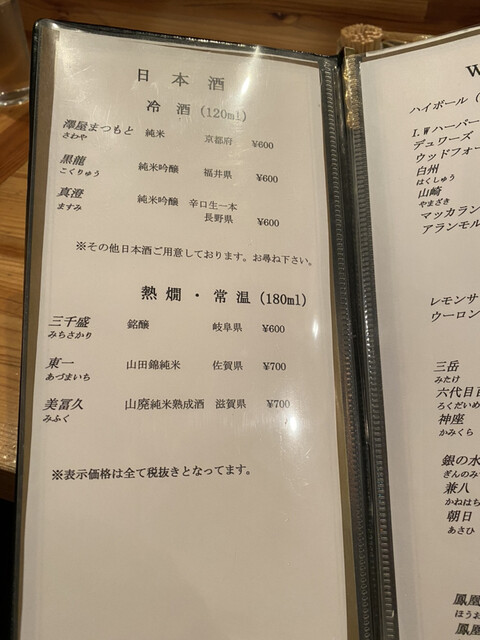 日本酒
冷酒(120ml)
澤屋まつもと 純米 京都府 ¥600
さわや
黒龍 純米吟醸 福井県 ¥600
こくりゅう
真澄 純米吟醸 辛口生一本
ますみ 長野県 ¥600
※その他日本酒ご用意しております。お尋ね下さい。
熱燗・常温(180ml)
三千盛 銘醸 岐阜県 ¥600
みちさかり
東一 山田錦純米 佐賀県 ¥700
あづまいち
美冨久 山廃純米熟成酒 滋賀県 ¥700
みふく
※表示価格は全て税抜きとなってます。
W
ハイボール(
I.Wハーパー
デュワーズ
ウッドフォー
白州
はくしゅう
山崎
やまざき
マッカラン
アランモル
レモンサ
ウーロン
三岳
みたけ
六代目百
ろくだいめ
神座
かみくら
銀の水
ぎんのみ
兼八
かねはち
朝日
あさひ
鳳凰
ほうお
鳳凰